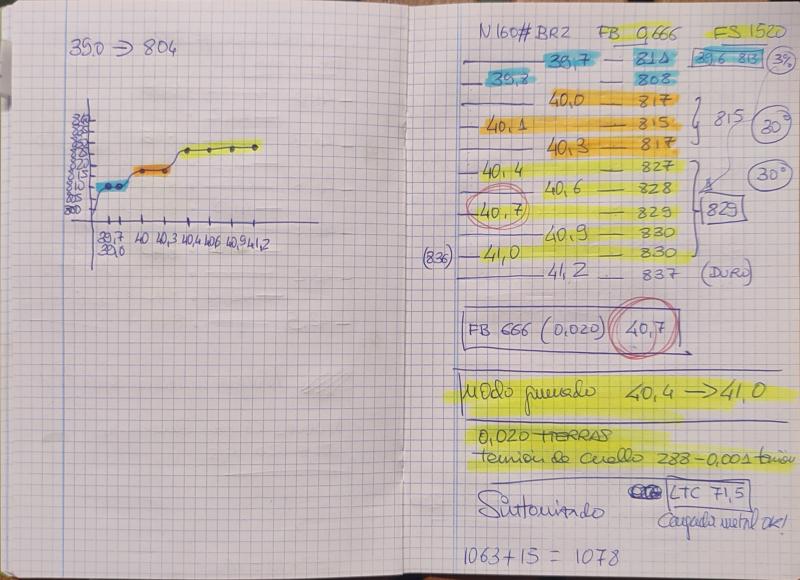 35.0 → 804
820
815
810
805
800
39,7 40 40,3 40,4 40,6 40,9 41,2
39,0
N160 # BR2 FB 0,666 FS 1520
39,7 — 814 39,6 813 3%
39,8 — 808
40,0 — 817
40,1 — 815 815 30°
40,3 — 817
40,4 — 827 30°
40,6 — 828
40,7 — 829 829
40,9 — 830
(836) 41,0 — 830
41,2 — 837 (DURO)
FB 666 (0,020) 40,7
40,4 → 41,0
0,020 TIERRAS
tensión de cuello 288-0,001 tensión
Sintonizado LTC 71,5
Cargada metal OK!
1063 + 15 = 1078